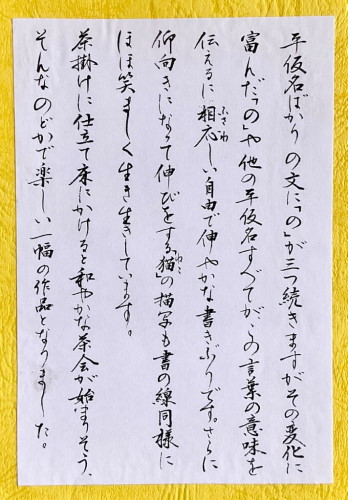 平仮名ばかりの文に「の」が三つ続きますがその変化に
富んだ「の」や他の平仮名すべてが、この言葉の意味を
伝えるに相応しい自由で伸やかな書きぶりです。さらに
仰向きになって伸びをする「猫」の描写も書の線同様に
ほほ笑ましく生き生きしています。
茶掛けに仕立て床にかけると和やかな茶会が始まりそう、
そんなのどかで楽しい一幅の作品となりました。
ふさわ
ねこ